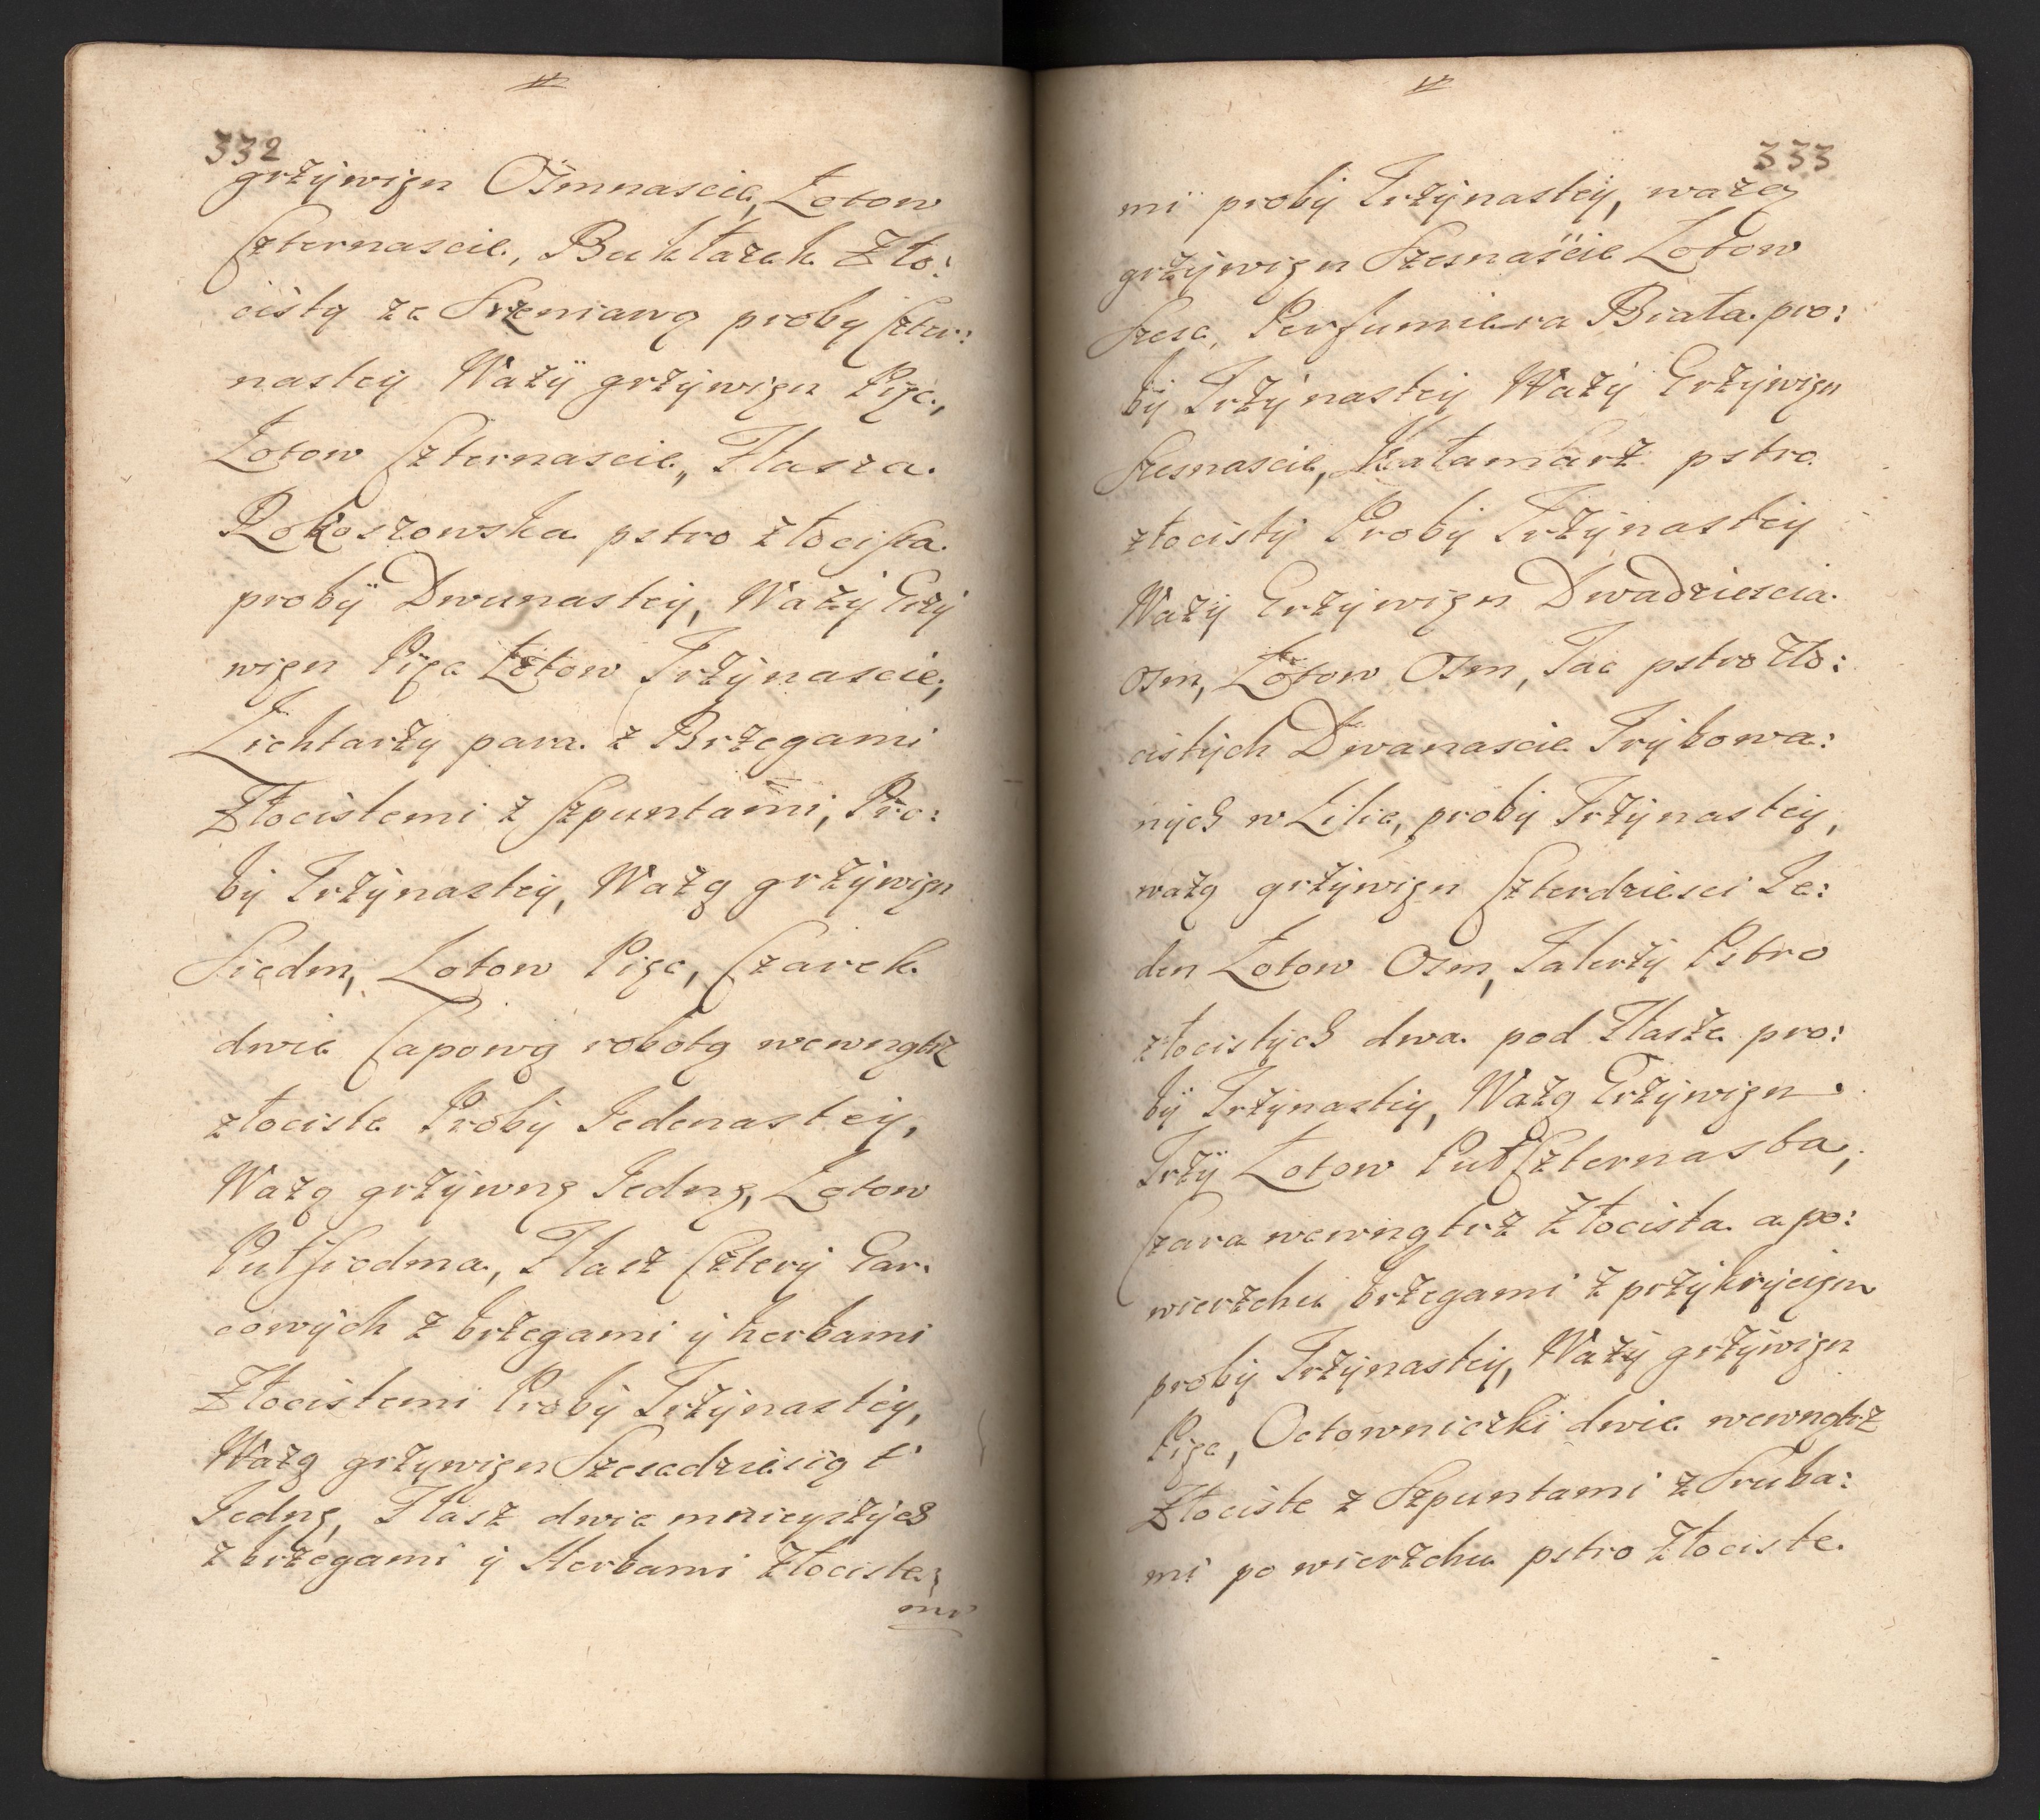 332
grżÿwięn Osmnascie, Łotow
Czternascie, Buktażek Zło:
cisty ze Srzeniawą proby Czter:
nastey Ważÿ grżÿwięn Pięc,
Łotow Czternascie, Flasza
Rokoszowska pstro złocista
probÿ Dwunastey, Wazy Grzÿ
więn Pięc Łotow Trżÿnascie,
Lichtarży para z Brżegami
Złocistemi z Szpuntami, Pro:
bÿ Trżÿnastey, Ważą grżÿwięn
Siedm, Łotow Pięc, Czarek
dwie Capową robotą wewnątrz
złociste Probÿ Jedenastey,
Ważą grżÿwnę Jednę, Łotow
Puł siodma, Flasz Czterÿ Gar:
cowÿch z brżegami ÿ herbami
Złocistemi Probÿ Trżÿnastey,
Ważą grżÿwięn Szescdziesiąt
Jednę, Flasz dwie mnieyszÿch
z brżegami ÿ Herbami Złociste:
mi
333
mi probÿ Trżÿnastey, ważą
grżÿwięn Szesnascie Łotow
Szesc, Perfumiera Biała pro:
bÿ Trżÿnastey Ważÿ Grżÿwięn
Szesnascie, Kałamarż pstro
złocistÿ Probÿ Trżÿnastey
Ważÿ Grżÿwięn Dwadziescia
osm, Łotow Osm, Tac pstro Zło:
cistÿch Dwanascie Trÿbowa:
nÿch w Lilie, probÿ Trżÿnastey,
ważą grżÿwięn Czterdziesci Je:
den Łotow Osm, Talerżÿ Pstro
złocistÿch dwa pod Flasze pro:
bÿ Trżÿnastey, Ważą Grżÿwięn
Trżÿ Łotow Puł Czternasta,
Czara wewnątrż Złocista a po:
wierżchu brżegami z prżÿkrÿciem
probÿ Trżÿnastey, Ważÿ grżÿwięn
Pięc, Octowniczki dwie wewnątrz
Złociste z Szpuntami z Sruba:
mi po wierżchu pstro Złociste